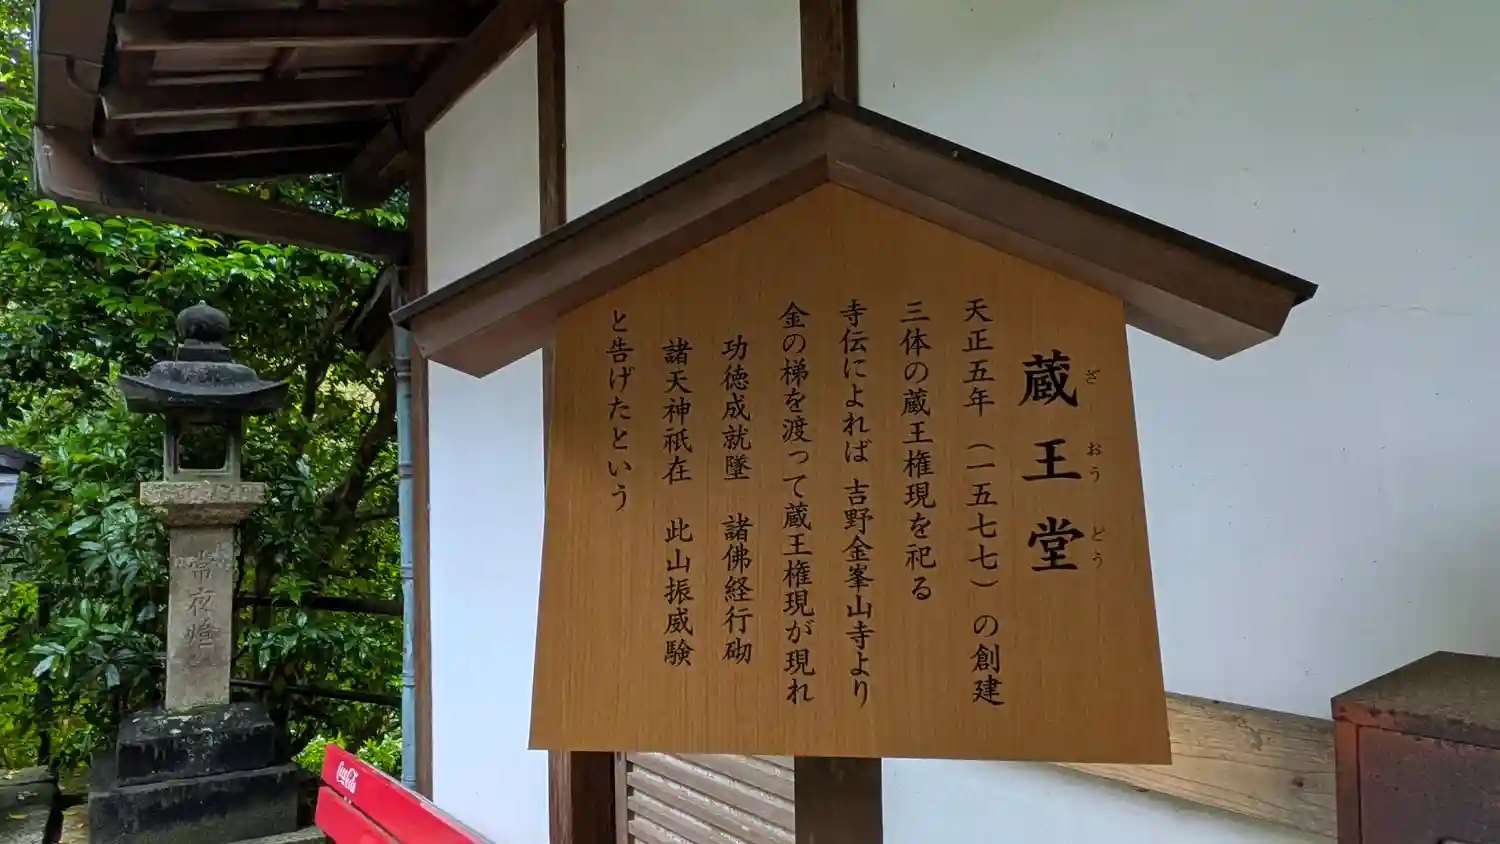 蔵王堂
ざおうどう
天正五年（一五七七）の創建
三体の蔵王権現を祀る
寺伝によれば 吉野金峯山寺より
金の梯を渡って蔵王権現が現れ
功徳成就墜 諸佛経行砌
諸天神祇在 此山振威験
と告げたという
常夜燈
Coca-Cola